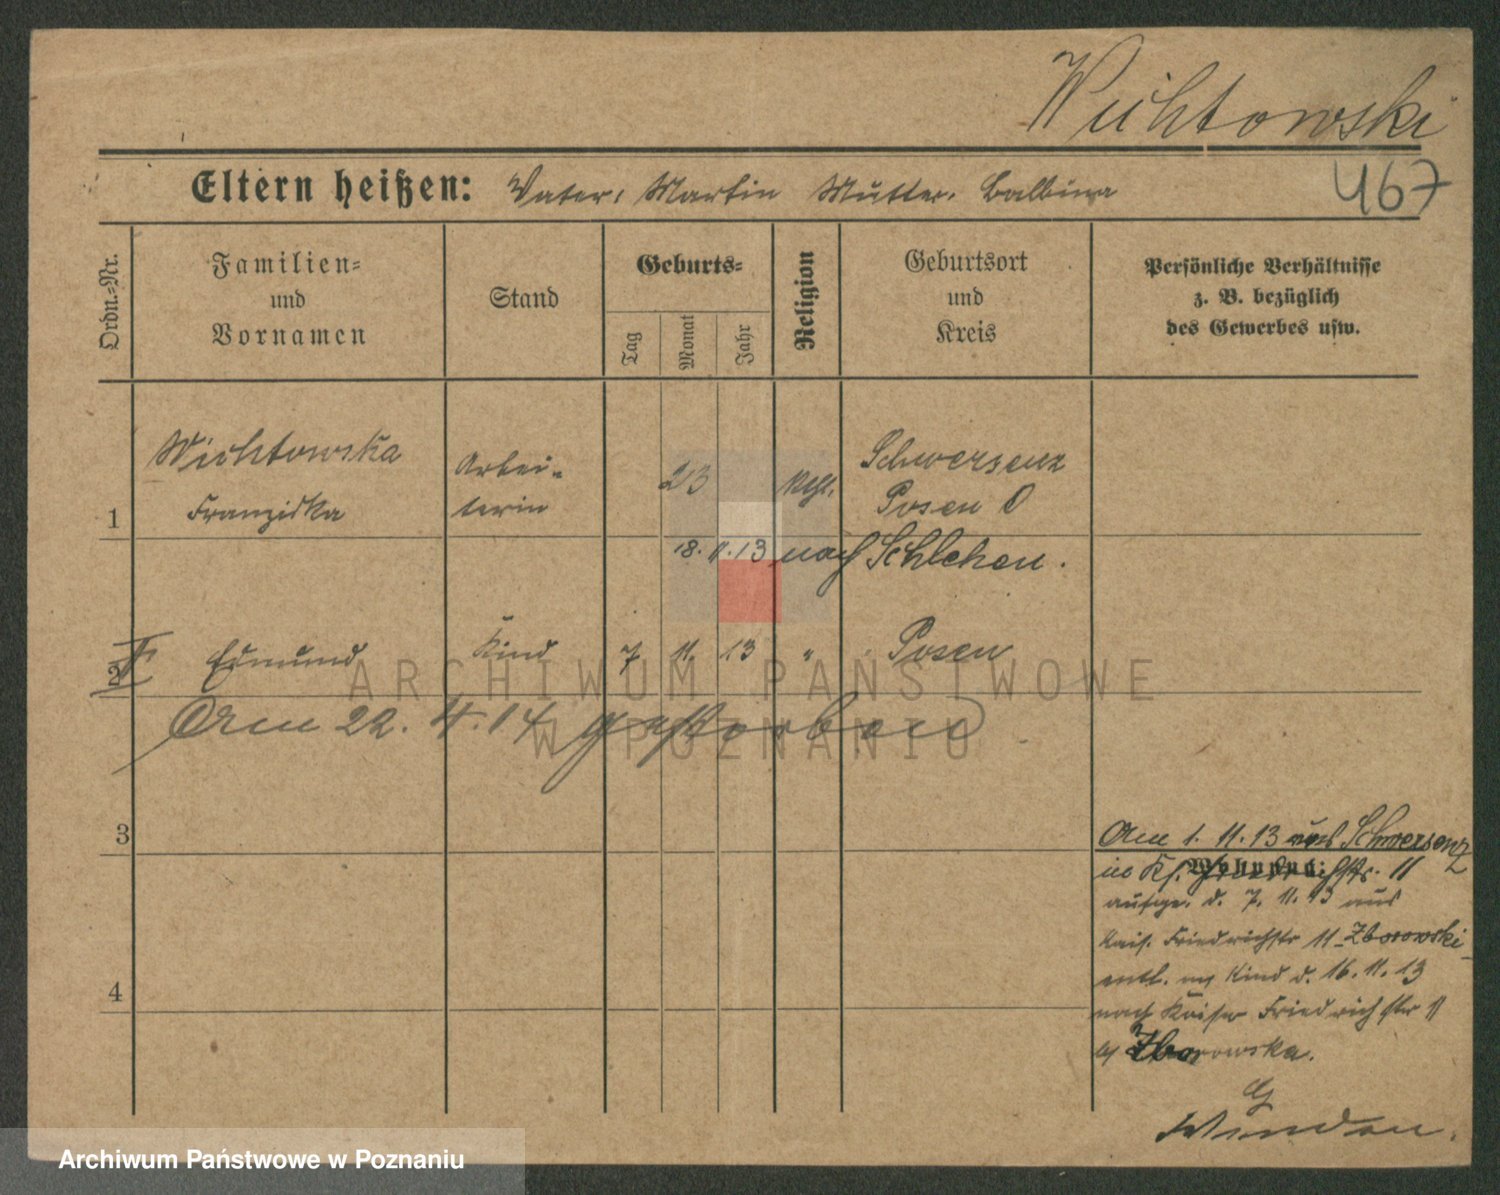 Wichtowski
Eltern heißen: Vater: Martin Mutter: Balbina
467
Ordn.-Nr.
Familien-
und
Vornamen
Stand
Geburts-
Tag
Monat
Jahr
Religion
Geburtsort
und
Kreis
Persönliche Verhältnisse
z. B. bezüglich
des Gewerbes usw.
1
Wichtowska
Franziska
Arbei-
terin
23
kth.
Schwersenz
Posen O
18. 11. 13 nach Schlehen.
2
Edmund
Kind
7
11.
13
"
Posen
Am 22. 4. 14 gestorben
3
4
Am 1. 11. 13 aus Schwersenz
in Ks. 11
Wohnung:
aufge. d. 7. 11. 13 aus
Kais. Friedrichstr 11 Zborowski
entl. m Kind d. 16. 11. 13
nach Kaiser Friedrichstr 11
b/ Zborowska.
ARCHIWUM PAŃSTWOWE
W POZNANIU
Archiwum Państwowe w Poznaniu